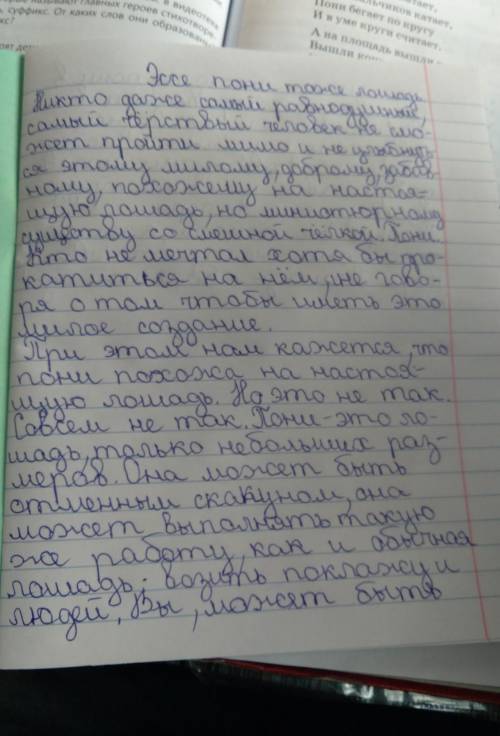 , в видеотеке
орые называют главных героев стихотворе-
ь, суффикс. От каких слов они образован-
кс?
оят де
льчиков катает,
Пони бегает по кругу
И в уме круги считает.
А на площадь вышли
Вышли кони
Эссе пони тоже лошадь.
Никто даже самый равнодушный,
самый чёрствый человек не смо-
жет пройти мимо и не улыбнуть
ся этому милому, доброму, забав
ному, похожему на настоя-
щую лошадь, но миниатюрному
существу со смешной чёлкой. Пони.
Кто не мечтал хотя бы про-
катиться на нём, не гово-
ря о том чтобы иметь это
милое создание.
При этом нам кажется, что
пони похожа на настоя-
щую лошадь. Но это не так.
Совсем не так. Пони-это ло-
шадь, только небольших раз-
меров. Она может быть
отменным скакуном, она
может выполнять такую
же работу, как и обычная
лошадь: возить поклажу и
людей. Вы, может быть